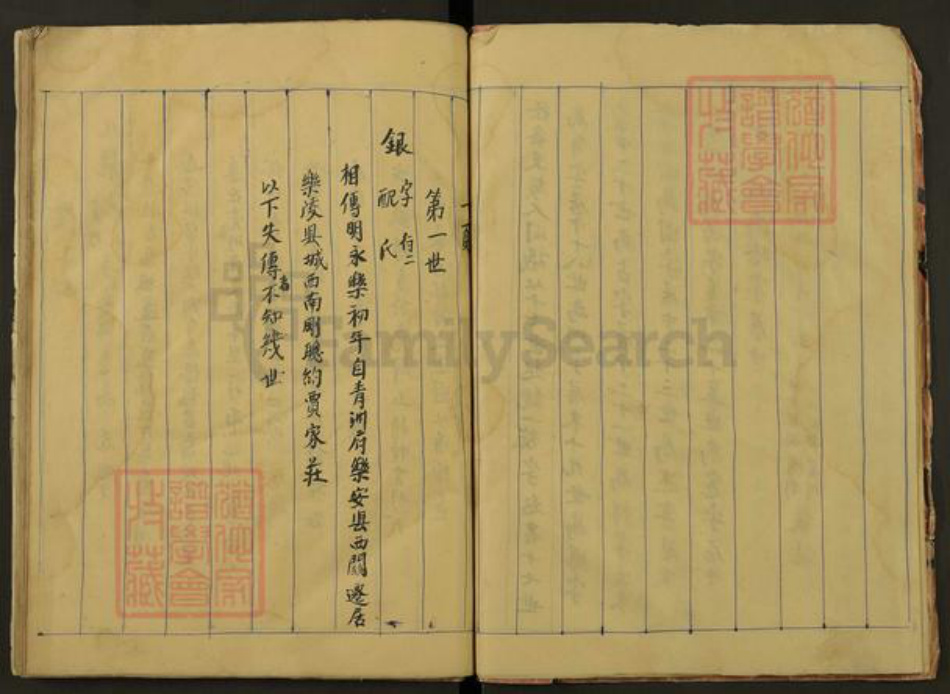 一頁
第一世
銀
字 行二
配 氏
相傳明永樂初年自青州府樂安县西關遷居
樂陵县城西南剛聰約賈家莊
以下失傳者不知幾世
FamilySearch
譜學會
收藏
譜學會
收藏